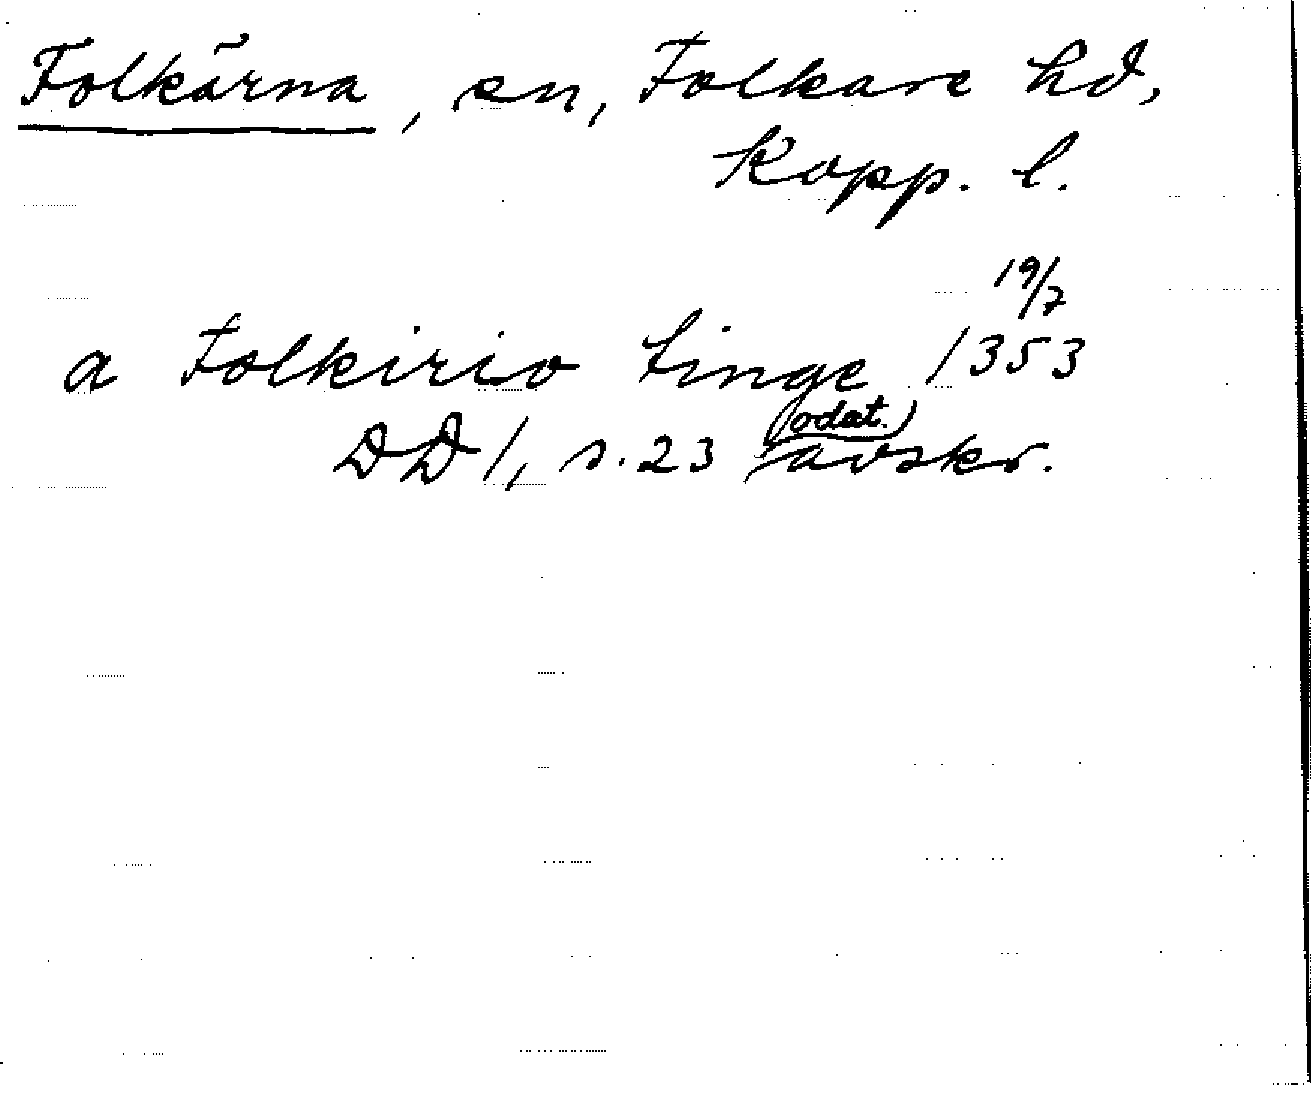 Folkärna, sn, Folkare hd,
Kopp. l.
a Folkirio tinge 19/7 1353
DD 1, s. 23 (odat.) avskr.